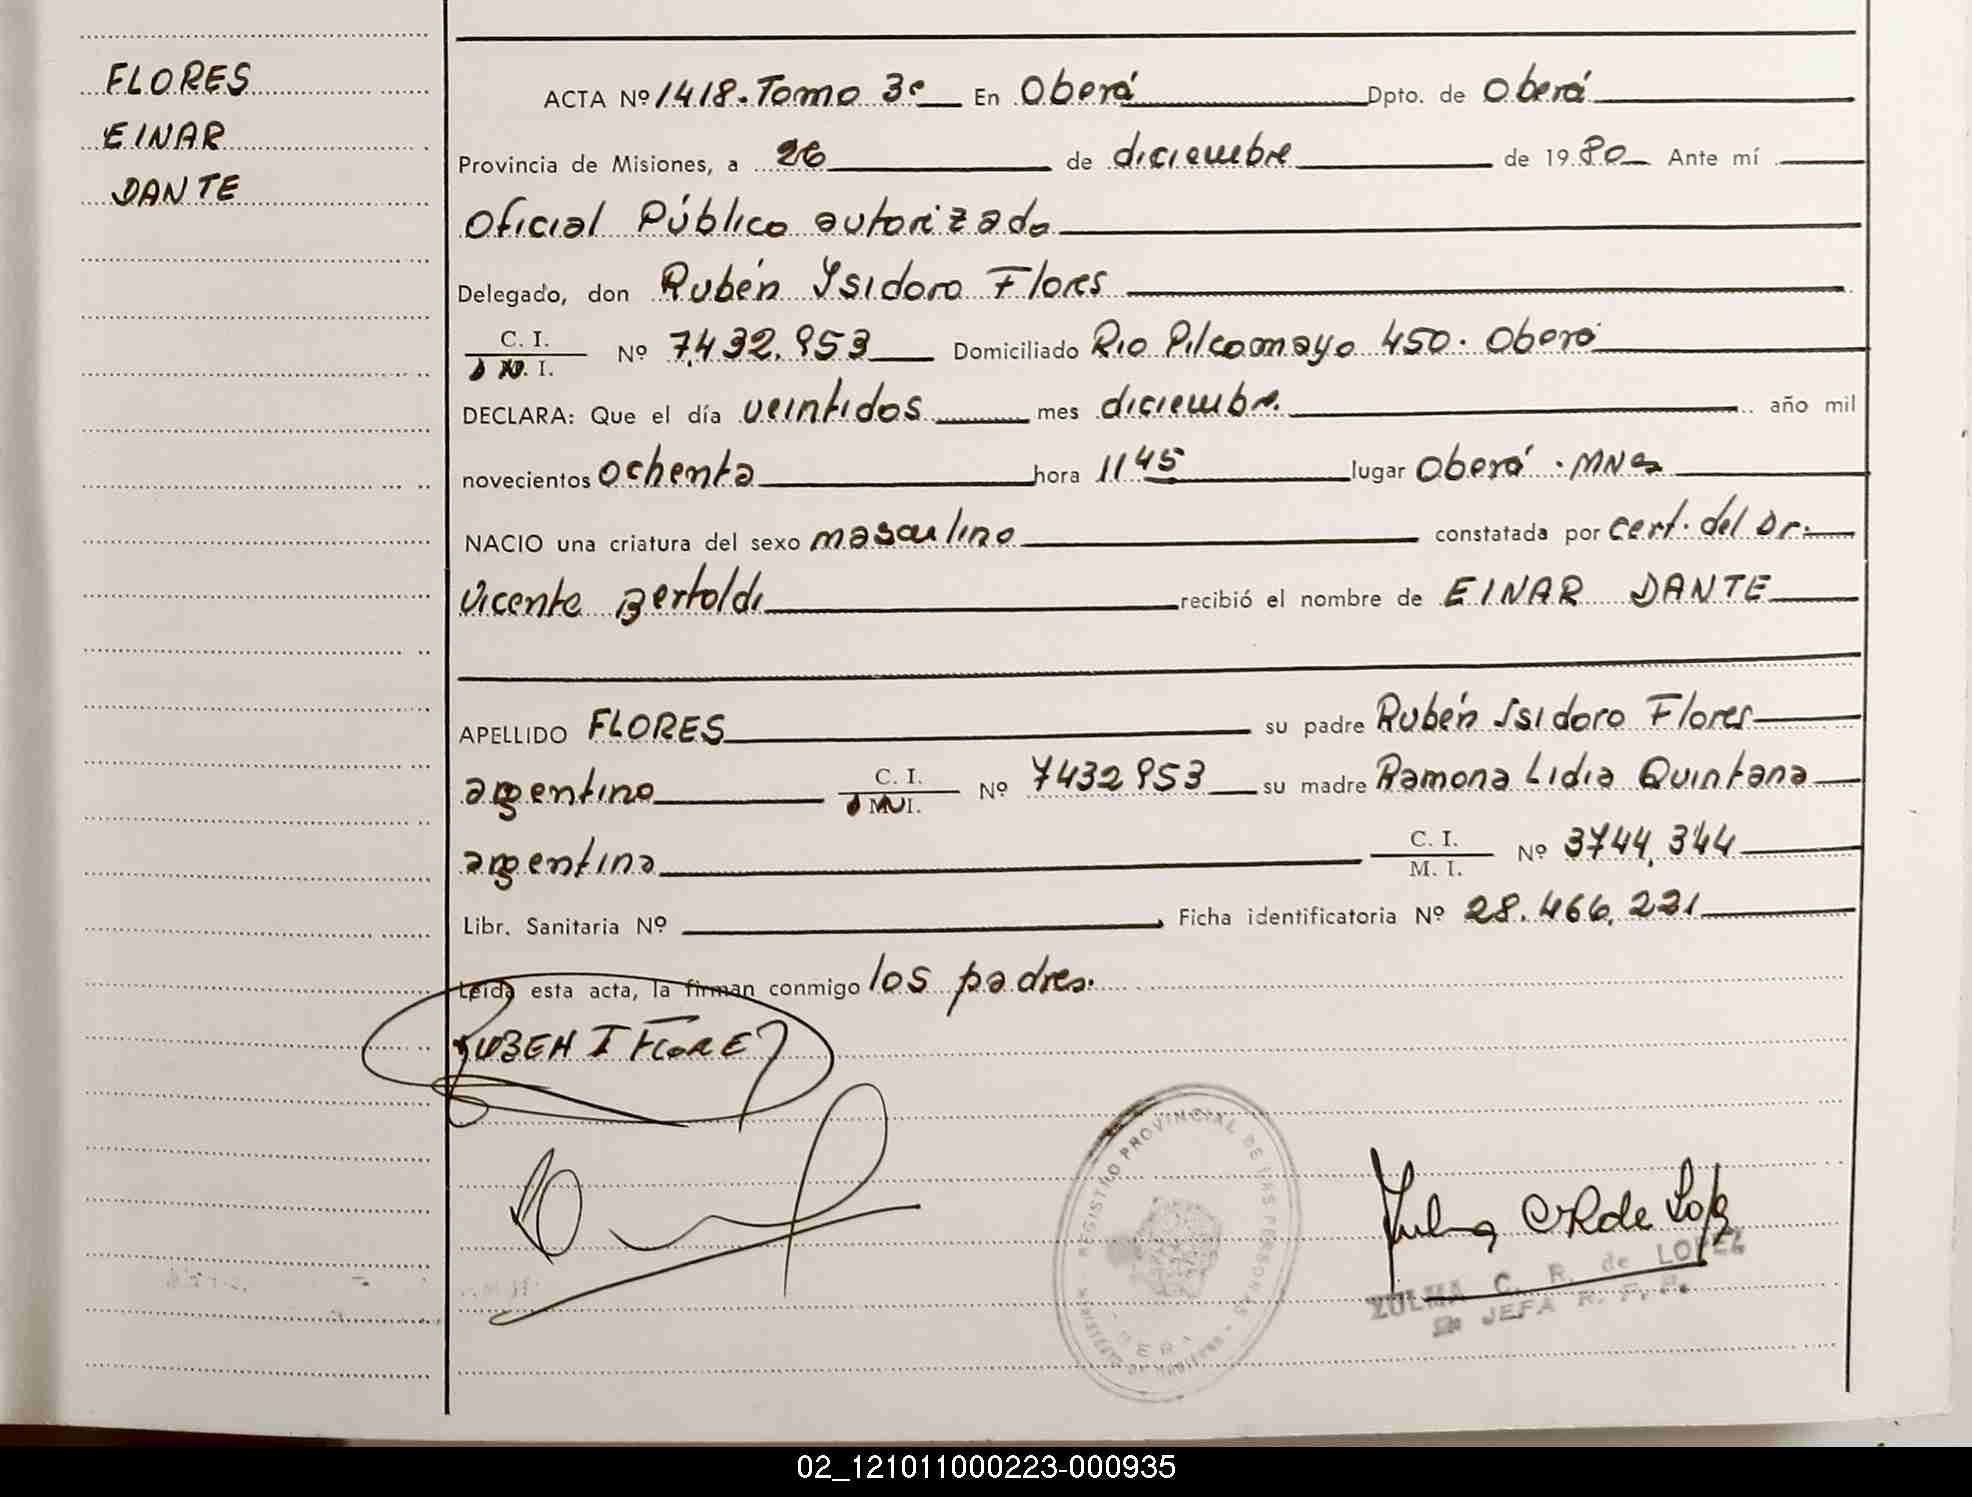 FLORES
EINAR
DANTE
ACTA Nº 1418. Tomo 3º En Oberá Dpto. de Oberá
Provincia de Misiones, a 26 de diciembre de 1980 Ante mí
Oficial Público autorizado
Delegado, don Rubén Isidoro Flores
C. I.
M. I. Nº 7.432.953 Domiciliado Rio Pilcomayo 450. Oberá
DECLARA: Que el día veintidos mes diciembre. año mil
novecientos ochenta hora 11 45 lugar Oberá . MNes
NACIO una criatura del sexo masculino constatada por cert. del Dr.
Vicente Bertoldi recibió el nombre de EINAR DANTE
APELLIDO FLORES su padre Rubén Isidoro Flores
argentino C. I. M. I. Nº 7432953 su madre Ramona Lidia Quintana
argentina C. I. M. I. Nº 3744.344
Libr. Sanitaria Nº Ficha identificatoria Nº 28.466.221
Leída esta acta, la firman conmigo los padres.
RUBEN I FLORES
REGISTRO PROVINCIAL DE LAS PERSONAS
Zulma C R de Lopez
ZULMA C. R. de LOPEZ
JEFA R. P. P.
02_121011000223-000935